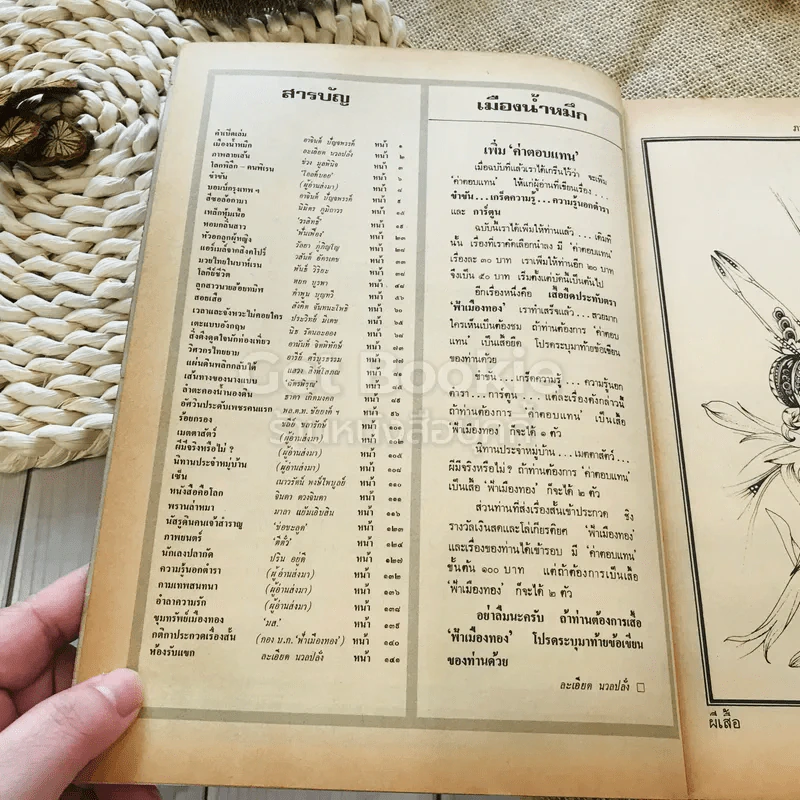 สารบัญ
คำเปิดเล่ม อาจินต์ ปัญจพรรค์ หน้า ๑
เมืองน้ำหมึก ละเอียด นวลปลั่ง หน้า ๒
ภาพลายเส้น ช่วง มูลพินิจ หน้า ๓
โลกพิลึก - คนพิเรน 'โกสต์บอย' หน้า ๔
ขำขัน (ผู้อ่านส่งมา) หน้า ๘
บอมบ์กรุงเทพ ฯ อาจินต์ ปัญจพรรค์ หน้า ๙
สีซอลอกามา นิมิตร ภูมิถาวร หน้า ๑๕
เหล็กหุ้มเนื้อ 'รงสิทธิ์' หน้า ๑๙
หอมกลิ่นสาว 'ฟื้นเฟื่อง' หน้า ๒๓
หัวอกลูกผู้หญิง วัลยา ภู่ภิญโญ หน้า ๓๓
แอร์เมล์จากสิงคโปร์ วสันต์ อัครเดช หน้า ๓๔
มวยไทยในบาห์เรน พันธ์ วิริยะ หน้า ๓๘
โลกีย์ชีวิต หยก บูรพา หน้า ๔๕
ลูกสาวนายร้อยทมิฬ คำพูน บุญทวี หน้า ๕๖
สอยเสือ สังคีต จันทนะโพธิ หน้า ๖๐
เวลาและจังหวะไม่คอยใคร ประวิทย์ มีเดช หน้า ๖๕
เตะแบบอังกฤษ นิธ รัตนะออง หน้า ๖๘
สิ่งดึงดูดใจนักท่องเที่ยว อานันท์ จิตพิทักษ์ หน้า ๗๓
วิศวกรไทยยาม อารีย์ ศรีบูรธรรม หน้า ๗๗
แผ่นดินพลิกกลับได้ แสวง สาทโสภณ หน้า ๘๑
เส้นทางของนางแบบ 'ฉัตรพิรุณ' หน้า ๘๕
ลำตะคองน้ำนองดิน ธาดา เกิดมงคล หน้า ๙๑
อัศวินประดับเพชรคนแรก พล.ต.ท. ชัยยงค์ ฯ หน้า ๙๖
ร้อยกรอง หน้า ๑๐๑
เมตตาสัตว์ (ผู้อ่านส่งมา) หน้า ๑๐๒
ผีมีจริงหรือไม่ ? (ผู้อ่านส่งมา) หน้า ๑๐๕
นิทานประจำหมู่บ้าน (ผู้อ่านส่งมา) หน้า ๑๐๘
เซ็น เนาวรัตน์ พงษ์ไพบูลย์ หน้า ๑๑๐
หนังสือคือโลก จินดา ดวงจินดา หน้า ๑๑๑
พรานล่าหมา มาลา แย้มเอิบสิน หน้า ๑๑๖
นัสรูดินคนเจ้าสำราญ 'ช่อชะลูด' หน้า ๑๒๓
ภาพยนตร์ 'ดีดี๋ว์' หน้า ๑๒๔
นักเลงปลากัด ปริน อยู่ดี หน้า ๑๒๗
ความรู้นอกตำรา (ผู้อ่านส่งมา) หน้า ๑๓๒
กามเทพสนทนา (ผู้อ่านส่งมา) หน้า ๑๓๖
อำลาความรัก (ผู้อ่านส่งมา) หน้า ๑๓๘
ขุมทรัพย์เมืองทอง 'มส.' หน้า ๑๓๙
กติกาประกวดเรื่องสั้น (กอง บ.ก. 'ฟ้าเมืองทอง') หน้า ๑๔๐
ห้องรับแขก ละเอียด นวลปลั่ง หน้า ๑๔๑
เมืองน้ำหมึก
เพิ่ม 'ค่าตอบแทน'
เมื่อฉบับที่แล้วเราได้เกริ่นไว้ว่า จะเพิ่ม
'ค่าตอบแทน' ให้แก่ผู้อ่านที่เขียนเรื่อง...
ขำขัน...เกร็ดความรู้...ความรู้นอกตำรา
และ การ์ตูน
ฉบับนี้เราได้เพิ่มให้ท่านแล้ว...เดิมที
นั้น เรื่องที่คัดเลือกนำลง มี 'ค่าตอบแทน'
เรื่องละ ๓๐ บาท เราเพิ่มให้ท่านอีก ๒๐ บาท
จึงเป็น ๕๐ บาท เริ่มตั้งแต่บัดนี้เป็นต้นไป
อีกเรื่องหนึ่งคือ เสื้อยืดประทับตรา
'ฟ้าเมืองทอง' เราทำเสร็จแล้ว...สวยมาก
ใครเห็นเป็นต้องชม ถ้าท่านต้องการ 'ค่าตอบ
แทน' เป็นเสื้อยืด โปรดระบุมาท้ายข้อเขียน
ของท่านด้วย
ขำขัน...เกร็ดความรู้...ความรู้นอก
ตำรา...การ์ตูน...แต่ละเรื่องดังกล่าวนี้
ถ้าท่านต้องการ 'ค่าตอบแทน' เป็นเสื้อ
'ฟ้าเมืองทอง' ก็จะได้ ๑ ตัว
นิทานประจำหมู่บ้าน...เมตตาสัตว์...
ผีมีจริงหรือไม่ ? ถ้าท่านต้องการ 'ค่าตอบแทน'
เป็นเสื้อ 'ฟ้าเมืองทอง' ก็จะได้ ๒ ตัว
ส่วนท่านที่ส่งเรื่องสั้นเข้าประกวด ชิง
รางวัลเงินสดและโล่เกียรติยศ 'ฟ้าเมืองทอง'
และเรื่องของท่านได้เข้ารอบ มี 'ค่าตอบแทน'
ขั้นต้น ๑๐๐ บาท แต่ถ้าต้องการเป็นเสื้อ
'ฟ้าเมืองทอง' ก็จะได้ ๒ ตัว
อย่าลืมนะครับ ถ้าท่านต้องการเสื้อ
'ฟ้าเมืองทอง' โปรดระบุมาท้ายข้อเขียน
ของท่านด้วย
ละเอียด นวลปลั่ง
ผีเสื้อ
Get Bookie